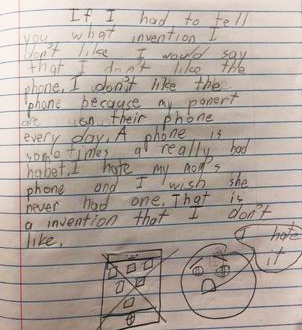 If I had to tell
you what invention I
don't like I would say
that I don't like the
phone. I don't like the
phone because my panert
are on their phone
every day. A phone is
somatimes a really bad
habet. I hate my mom's
phone and I wish she
never had one. That is
a invention that I don't
like.
I hate
it